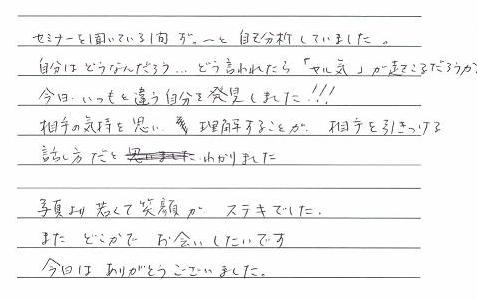 セミナーを聞いている間 ず〜〜と自己分析していました。
自分はどうなんだろう… どう言われたら「ヤル気」が起てこるだろうか
今日、いつもと違う自分を発見しました!!!
相手の気持を思い、理解することが、相手を引きつける
話し方だと 思いました わかりました
写真より若くて笑顔がステキでした。
また どこかで お会いしたいです
今日は ありがとうございました。